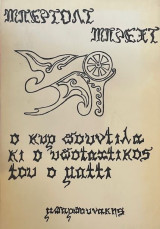 ΜΠΕΡΤΟΛΤ
ΜΠΡΕΧΤ
ο κυρ πουντιλα
κι ο υποτακτικος
του ο ματτι
μπαρμπουνακης